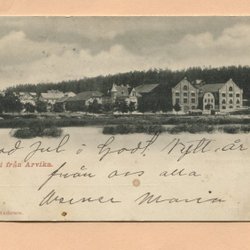 God Jul & Godt Nytt år
i från Arvika.
från oss alla
Werner Maria